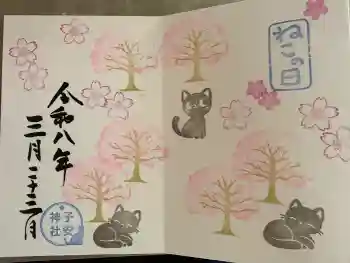 ねこの日
令和八年
三月二十二日
子安
神社